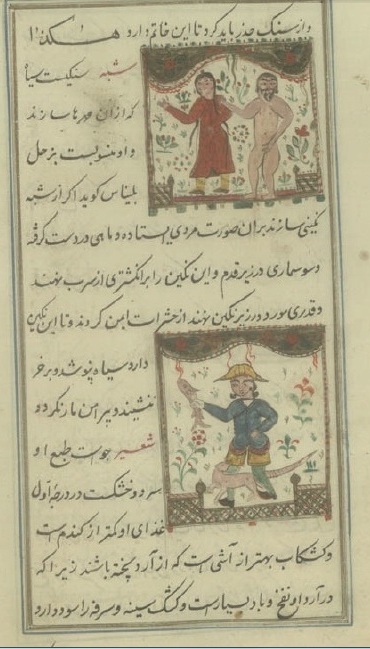 و از سنک حذر باید کرد تا این خاتم دارد هکذا
شبه سنکیست سیاه
که از ان مهرها سازند
و او منسوبست بزحل
بلیناس کوید اکر از شبه
نکینی سازند بران صورت مردی ایستاده و ماهی در دست کرفته
و سوسماری در زیر قدم و این نکین را بر انکشتری از سرب نهند
و قدری مورد در زیر نکین نهند از حشرات ایمن کردند و تا این نکین
دارد سیاه پوشد و بر خر
ننشیند و پیرامن مار نکردد
شعیر جوست طبع او
سرد و خشکست در درجه اول
غذای او کمتر از کندم است
و کشکاب بهتر از آشی است که از آرد پخته باشند زیرا که
در آرد او نفخ و باد بسیارست و کشک سینه و سرفه را سود دارد